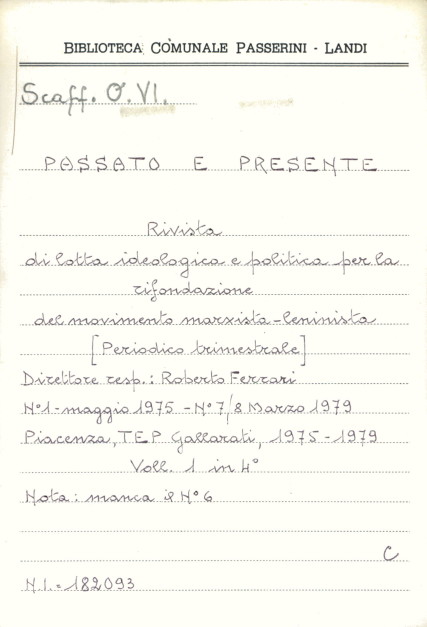 BIBLIOTECA COMUNALE PASSERINI - LANDI
Scaff. O.VI.
PASSATO E PRESENTE
Rivista
di lotta ideologica e politica per la
rifondazione
del movimento marxista-leninista
[Periodico trimestrale]
Direttore resp.: Roberto Ferrari
N°1-maggio 1975 - N°7/8 Marzo 1979
Piacenza, TEP Gallarati, 1975-1979
Voll. 1 in 4°
Nota: manca il N°6
C
N.I. = 182093